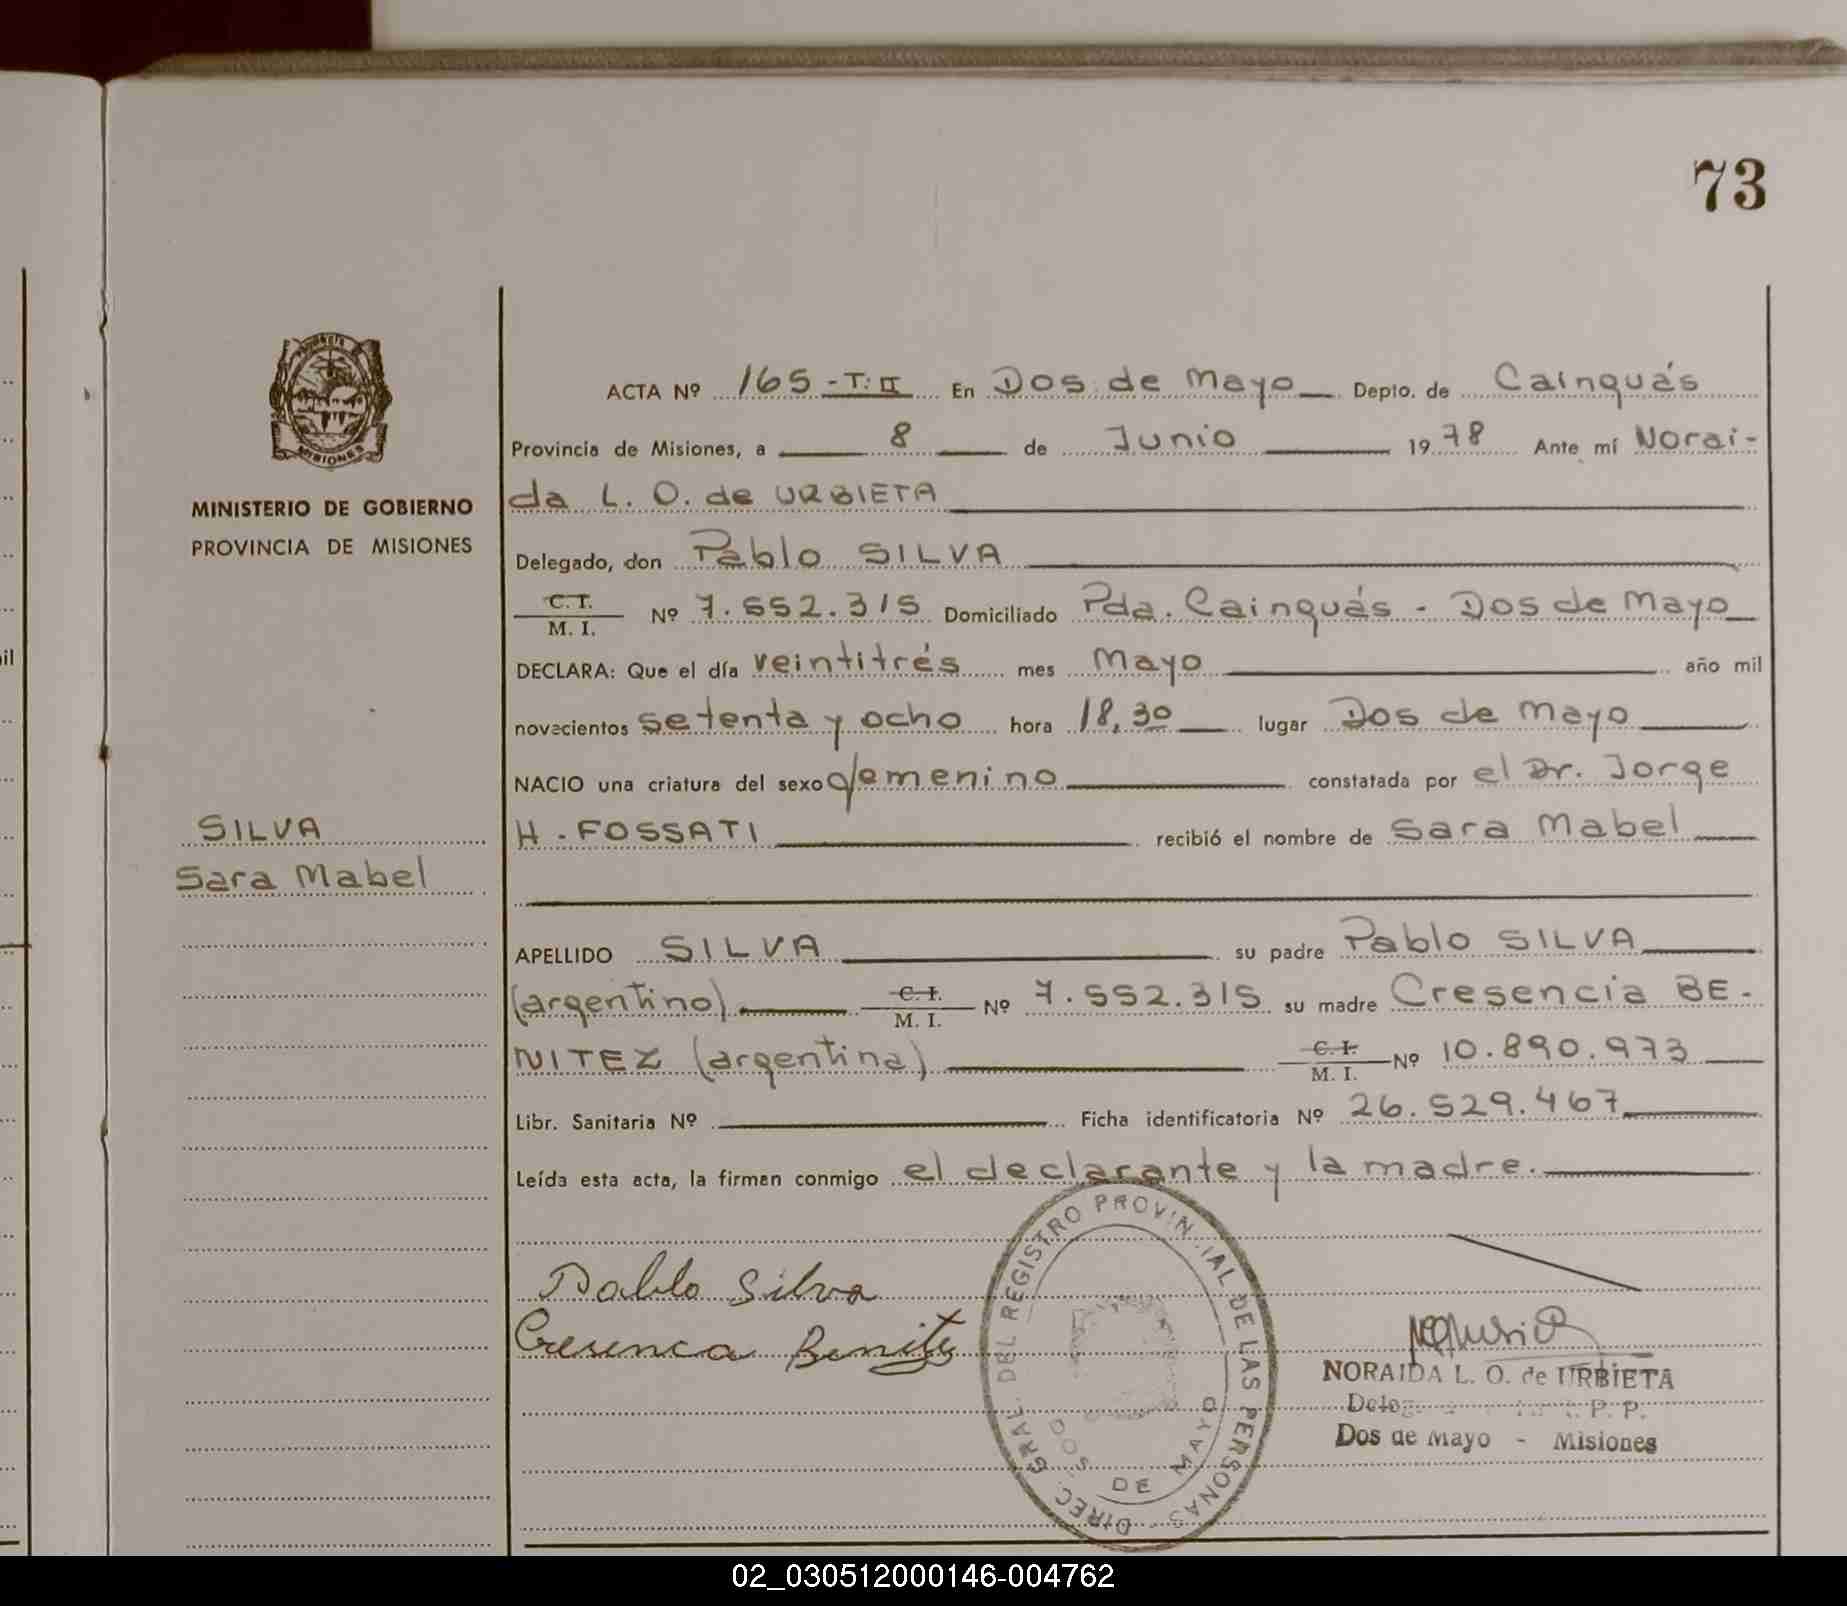 73
PROVINCIA DE
MISIONES
MINISTERIO DE GOBIERNO
PROVINCIA DE MISIONES
SILVA
Sara Mabel
ACTA Nº 165 - T: II En Dos de Mayo Depto. de Cainguás
Provincia de Misiones, a 8 de Junio 1978 Ante mí Norai-
da L. O. de URBIETA
Delegado, don Pablo SILVA
C. I. / M. I. Nº 7.552.315 Domiciliado Pda. Cainguás - Dos de Mayo
DECLARA: Que el día veintitrés mes Mayo año mil
novecientos setenta y ocho hora 18,30 lugar Dos de Mayo
NACIO una criatura del sexo femenino constatada por el Dr. Jorge
H. FOSSATI recibió el nombre de Sara Mabel
APELLIDO SILVA su padre Pablo SILVA
(argentino) C. I. / M. I. Nº 7.552.315 su madre Cresencia BE-
NITEZ (argentina) C. I. / M. I. Nº 10.890.973
Libr. Sanitaria Nº Ficha identificatoria Nº 26.529.467
Leída esta acta, la firman conmigo el declarante y la madre.
Pablo Silva
Cresenca Benitez
DIREC. GRAL. DEL REGISTRO PROVINCIAL DE LAS PERSONAS
DOS DE MAYO
NORAIDA L. O. de URBIETA
P. P.
Dos de Mayo - Misiones
mil
02_030512000146-004762